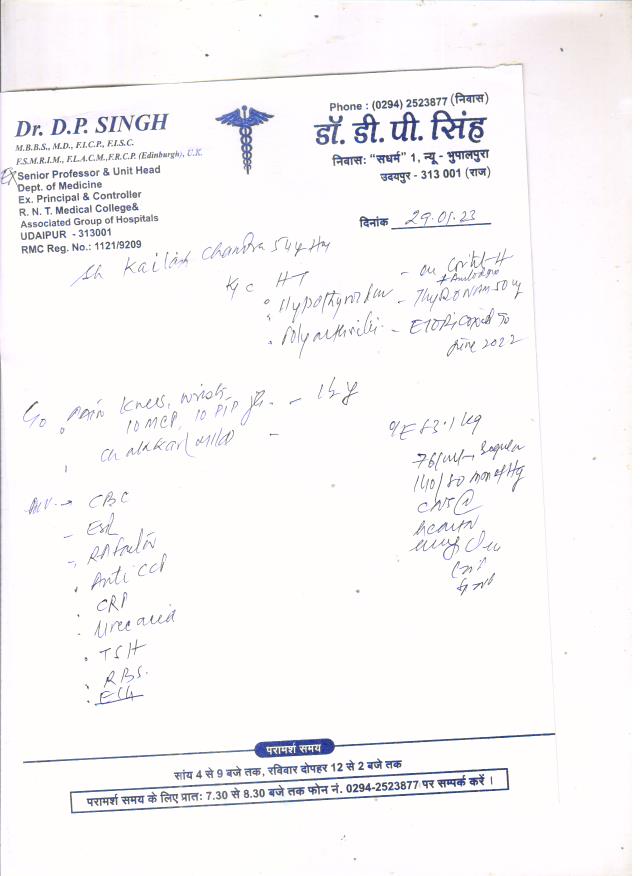 Dr. D.P. SINGH
M.B.B.S., M.D., F.I.C.P., F.I.S.C.
F.S.M.R.I.M., F.L.A.C.M.,F.R.C.P. (Edinburgh), U.K.
Ex Senior Professor & Unit Head
Dept. of Medicine
Ex. Principal & Controller
R. N. T. Medical College&
Associated Group of Hospitals
UDAIPUR - 313001
RMC Reg. No.: 1121/9209
Phone : (0294) 2523877 (निवास)
डॉ. डी. पी. सिंह
निवास: "सधर्म" 1, न्यू - भुपालपुरा
उदयपुर - 313 001 (राज)
दिनांक 29.01.23
Sh Kailash Chandra 54y
K/c HT - on
Hypothyroidism - THYRONAM 50
Polyarthritis - ETORICOXIB To
June 2022
C/o Pain Knees, wrists
10 MCP, 10 PIP Jts. - 1½ y
Chakkar (mild) -
O/E 83.1 kg
76/mt, Regular
140/80 mm of Hg
CNS
Inv → CBC
- ESR
- RA Factor
Anti CCP
CRP
Uric acid
TSH
RBS.
ECG
परामर्श समय
सांय 4 से 9 बजे तक, रविवार दोपहर 12 से 2 बजे तक
परामर्श समय के लिए प्रातः 7.30 से 8.30 बजे तक फोन नं. 0294-2523877 पर सम्पर्क करें ।